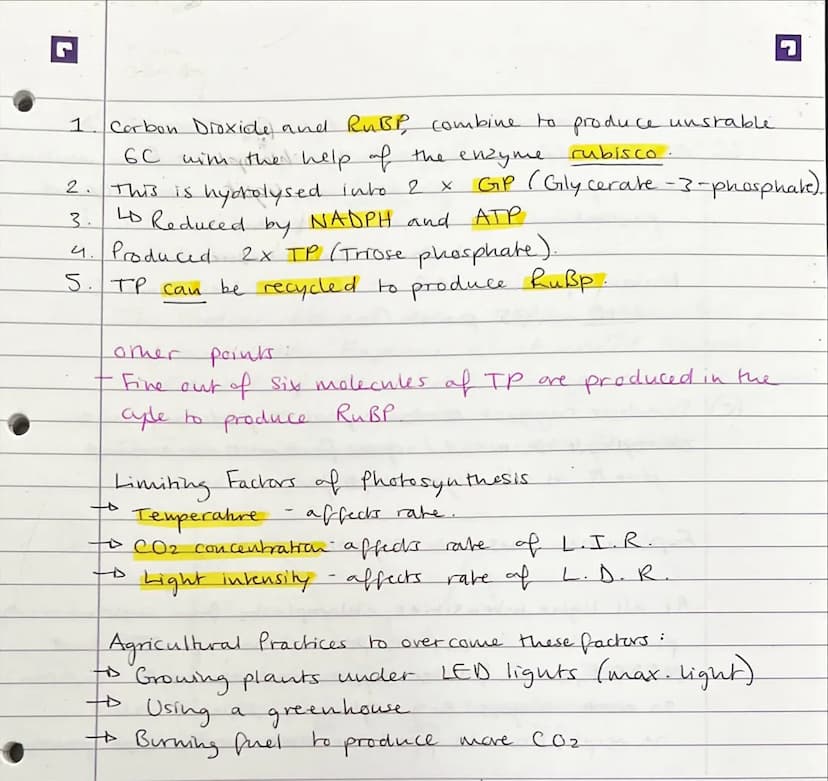 1. Carbon Dioxide and RuBP combine to produce unstable
6C with the help of the enzyme rubisco.
2. This is hydrolysed into 2 x GP (Glycerate-3-phosphate).
3. ↳ Reduced by NADPH and ATP
4. Produced 2x TP (Triose phosphate).
5. TP can be recycled to produce RuBp.
other points:
- Five out of six molecules of TP are produced in the
cycle to produce RuBP.
Limiting Factors of Photosynthesis
→ Temperature - affects rate.
→ CO2 concentration - affects rate of L.I.R.
→ Light intensity - affects rate of L.D.R.
Agricultural Practices to overcome these factors:
→ Growing plants under LED lights (max. light)
→ Using a greenhouse
→ Burning fuel to produce more CO2